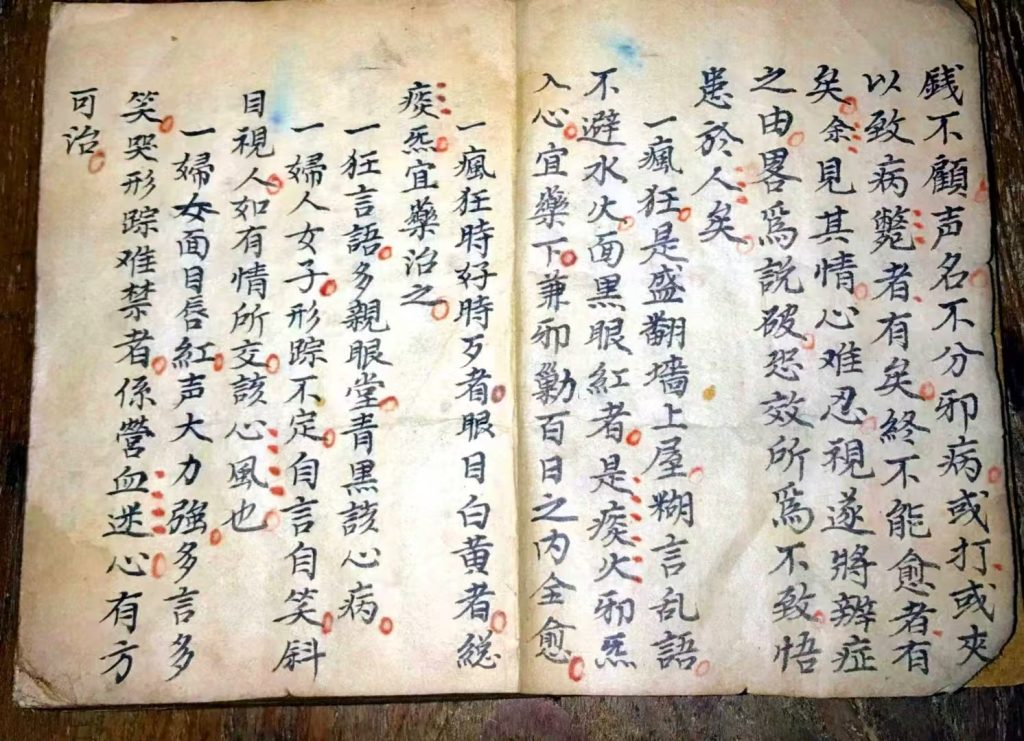 銭不顧声名不分邪病或打或夾
以致病斃者有矣終不能愈者有
矣余見其情心难忍視遂將辨症
之由畧爲説破恐效所爲不致悟
患於人矣
一瘋狂是盛翻墻上屋糊言乱語
不避水火面黒眼紅者是痰火邪炁
入心宜藥下兼邪勦百日之内全愈
一瘋狂時好時歹者眼目白黄者総
痰炁宜藥治之
一狂言語多親眼堂青黒該心病
一婦人女子形踪不定自言自笑斜
目視人如有情所交該心風也
一婦女面目唇紅声大力強多言多
笑哭形踪难禁者係營血迷心有方
可治